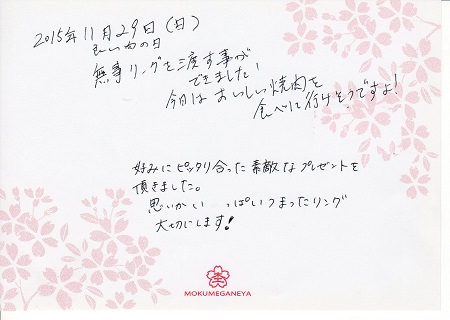 2015年11月29日(日)
いい肉の日
無事リングを渡す事が
できました、
今日はおいしい焼肉を
食べに行けそうですよ!
好みにピッタリ合った素敵なプレゼントを
頂きました。
思いがいっぱいつまったリング
大切にします!
MOKUMEGANEYA